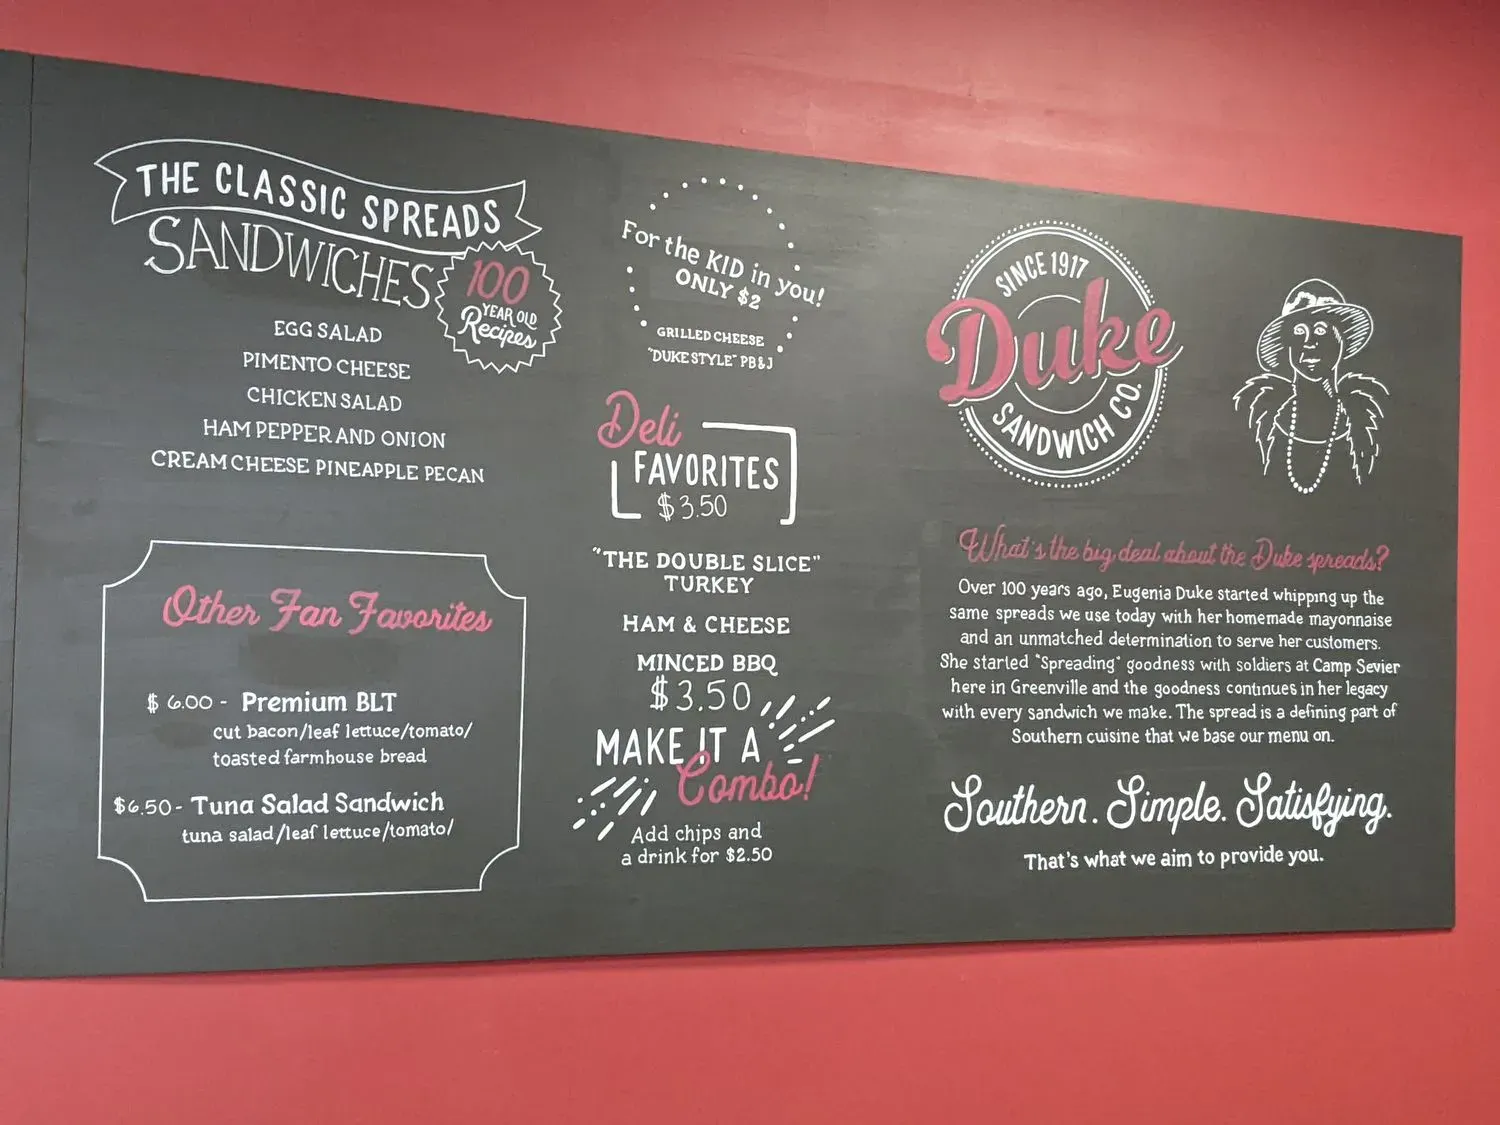 THE CLASSIC SPREADS
SANDWICHES
100
YEAR OLD
Recipes
EGG SALAD
PIMENTO CHEESE
CHICKEN SALAD
HAM PEPPER AND ONION
CREAM CHEESE PINEAPPLE PECAN
Other Fan Favorites
$ 6.00 - Premium BLT
cut bacon/leaf lettuce/tomato/
toasted farmhouse bread
$6.50 - Tuna Salad Sandwich
tuna salad/leaf lettuce/tomato/
For the KID in you!
ONLY $2
GRILLED CHEESE
"DUKE STYLE" PB&J
Deli
FAVORITES
$3.50
"THE DOUBLE SLICE"
TURKEY
HAM & CHEESE
MINCED BBQ
$3.50
MAKE IT A
Combo!
Add chips and
a drink for $2.50
SINCE 1917
Duke
SANDWICH CO.
What's the big deal about the Duke spreads?
Over 100 years ago, Eugenia Duke started whipping up the
same spreads we use today with her homemade mayonnaise
and an unmatched determination to serve her customers.
She started "Spreading" goodness with soldiers at Camp Sevier
here in Greenville and the goodness continues in her legacy
with every sandwich we make. The spread is a defining part of
Southern cuisine that we base our menu on.
Southern. Simple. Satisfying.
That's what we aim to provide you.